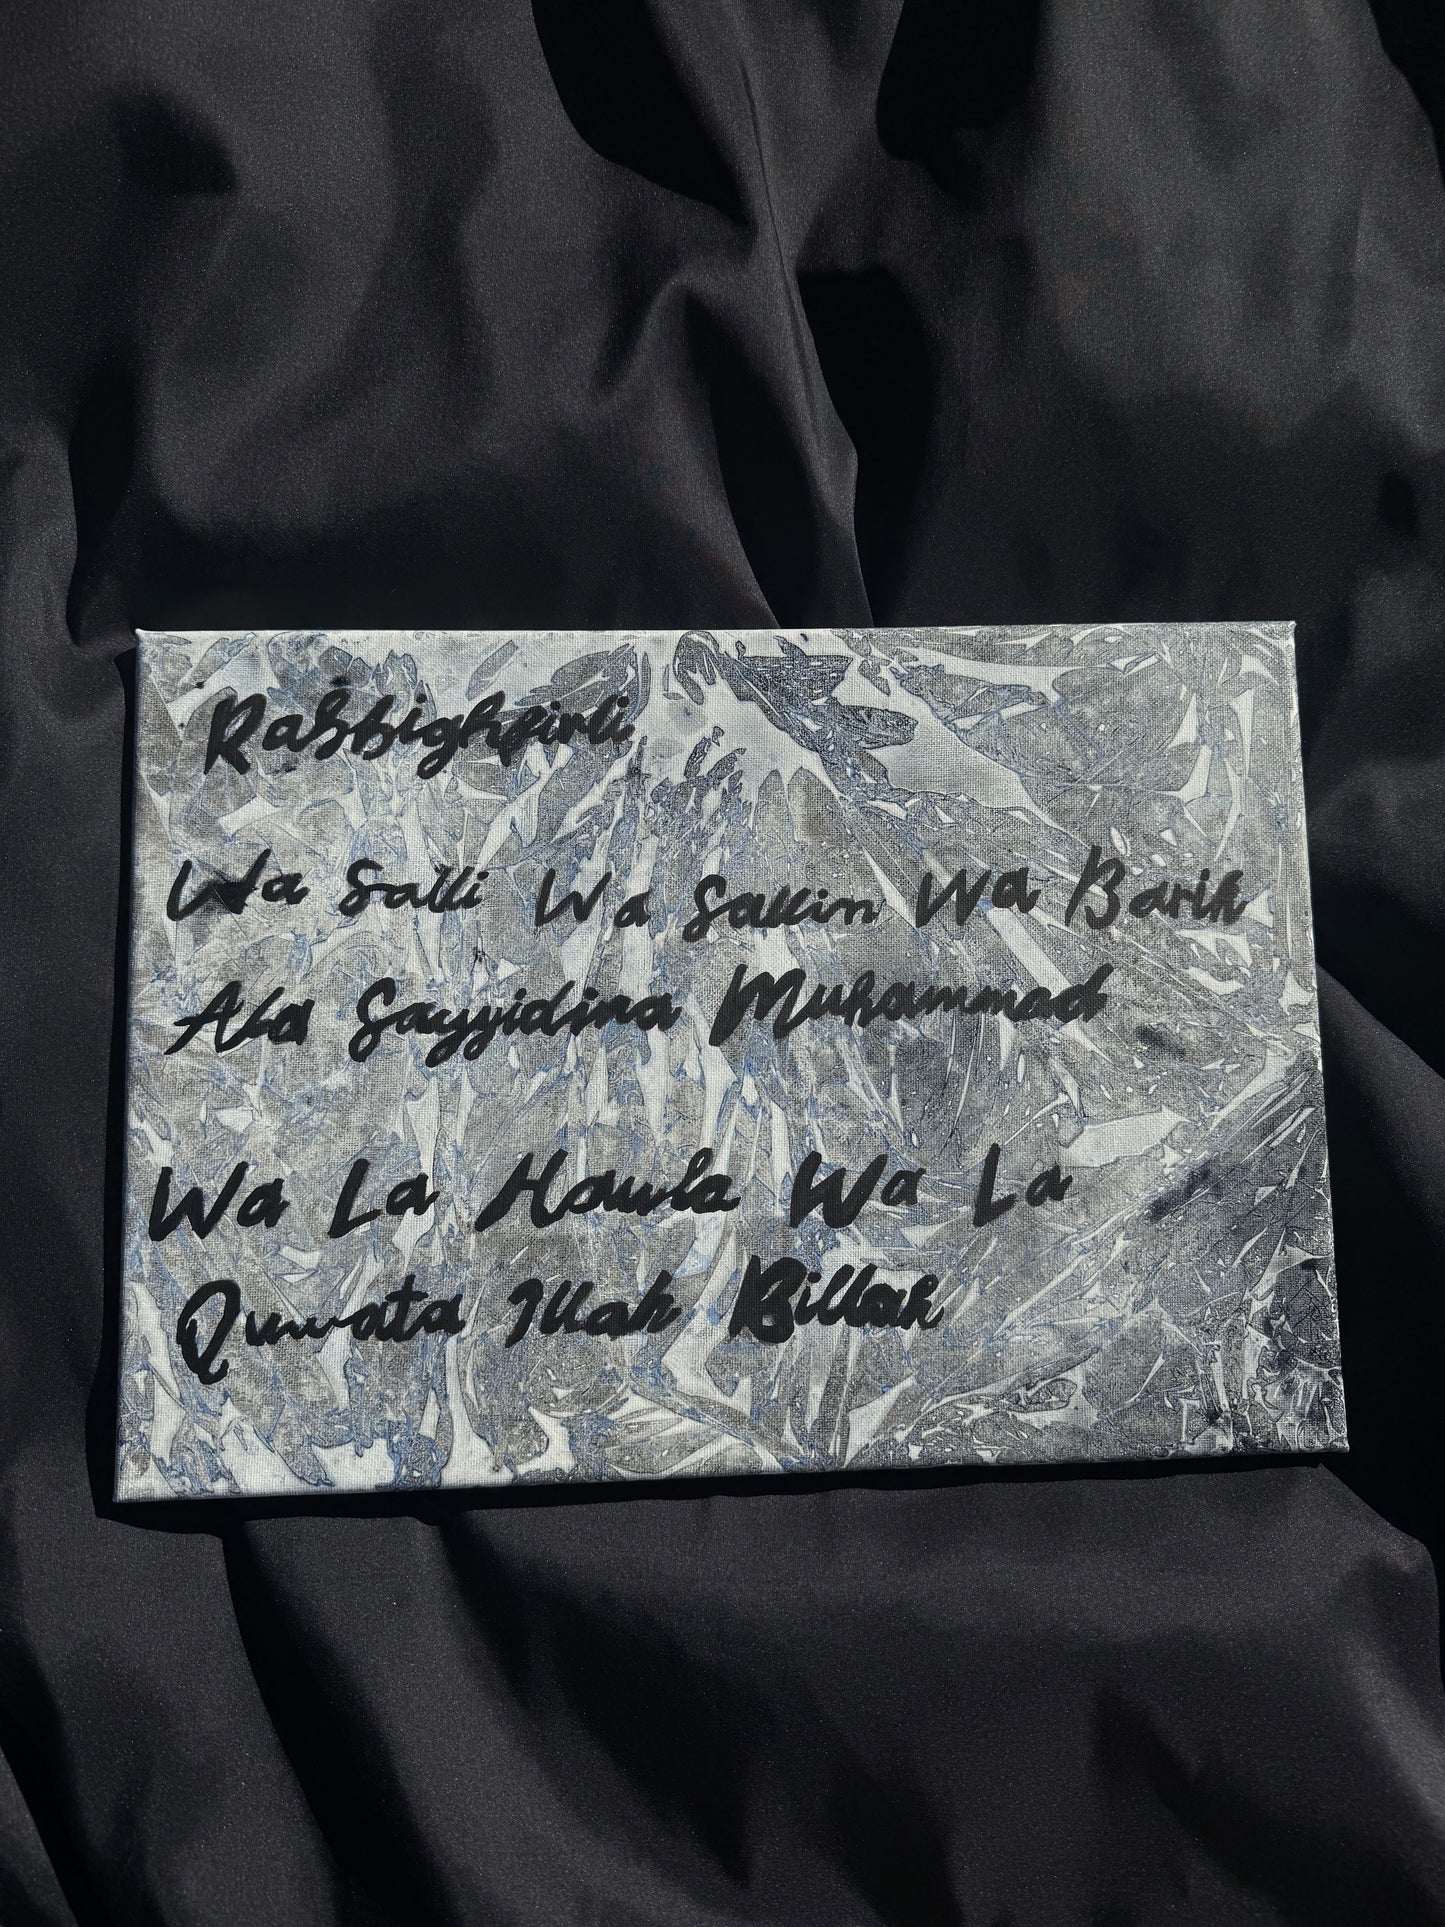 Rabbighfirli
Wa Salli Wa Sallim Wa Barik
Ala Sayyidina Muhammad
Wa La Hawla Wa La
Quwata Illah Billah